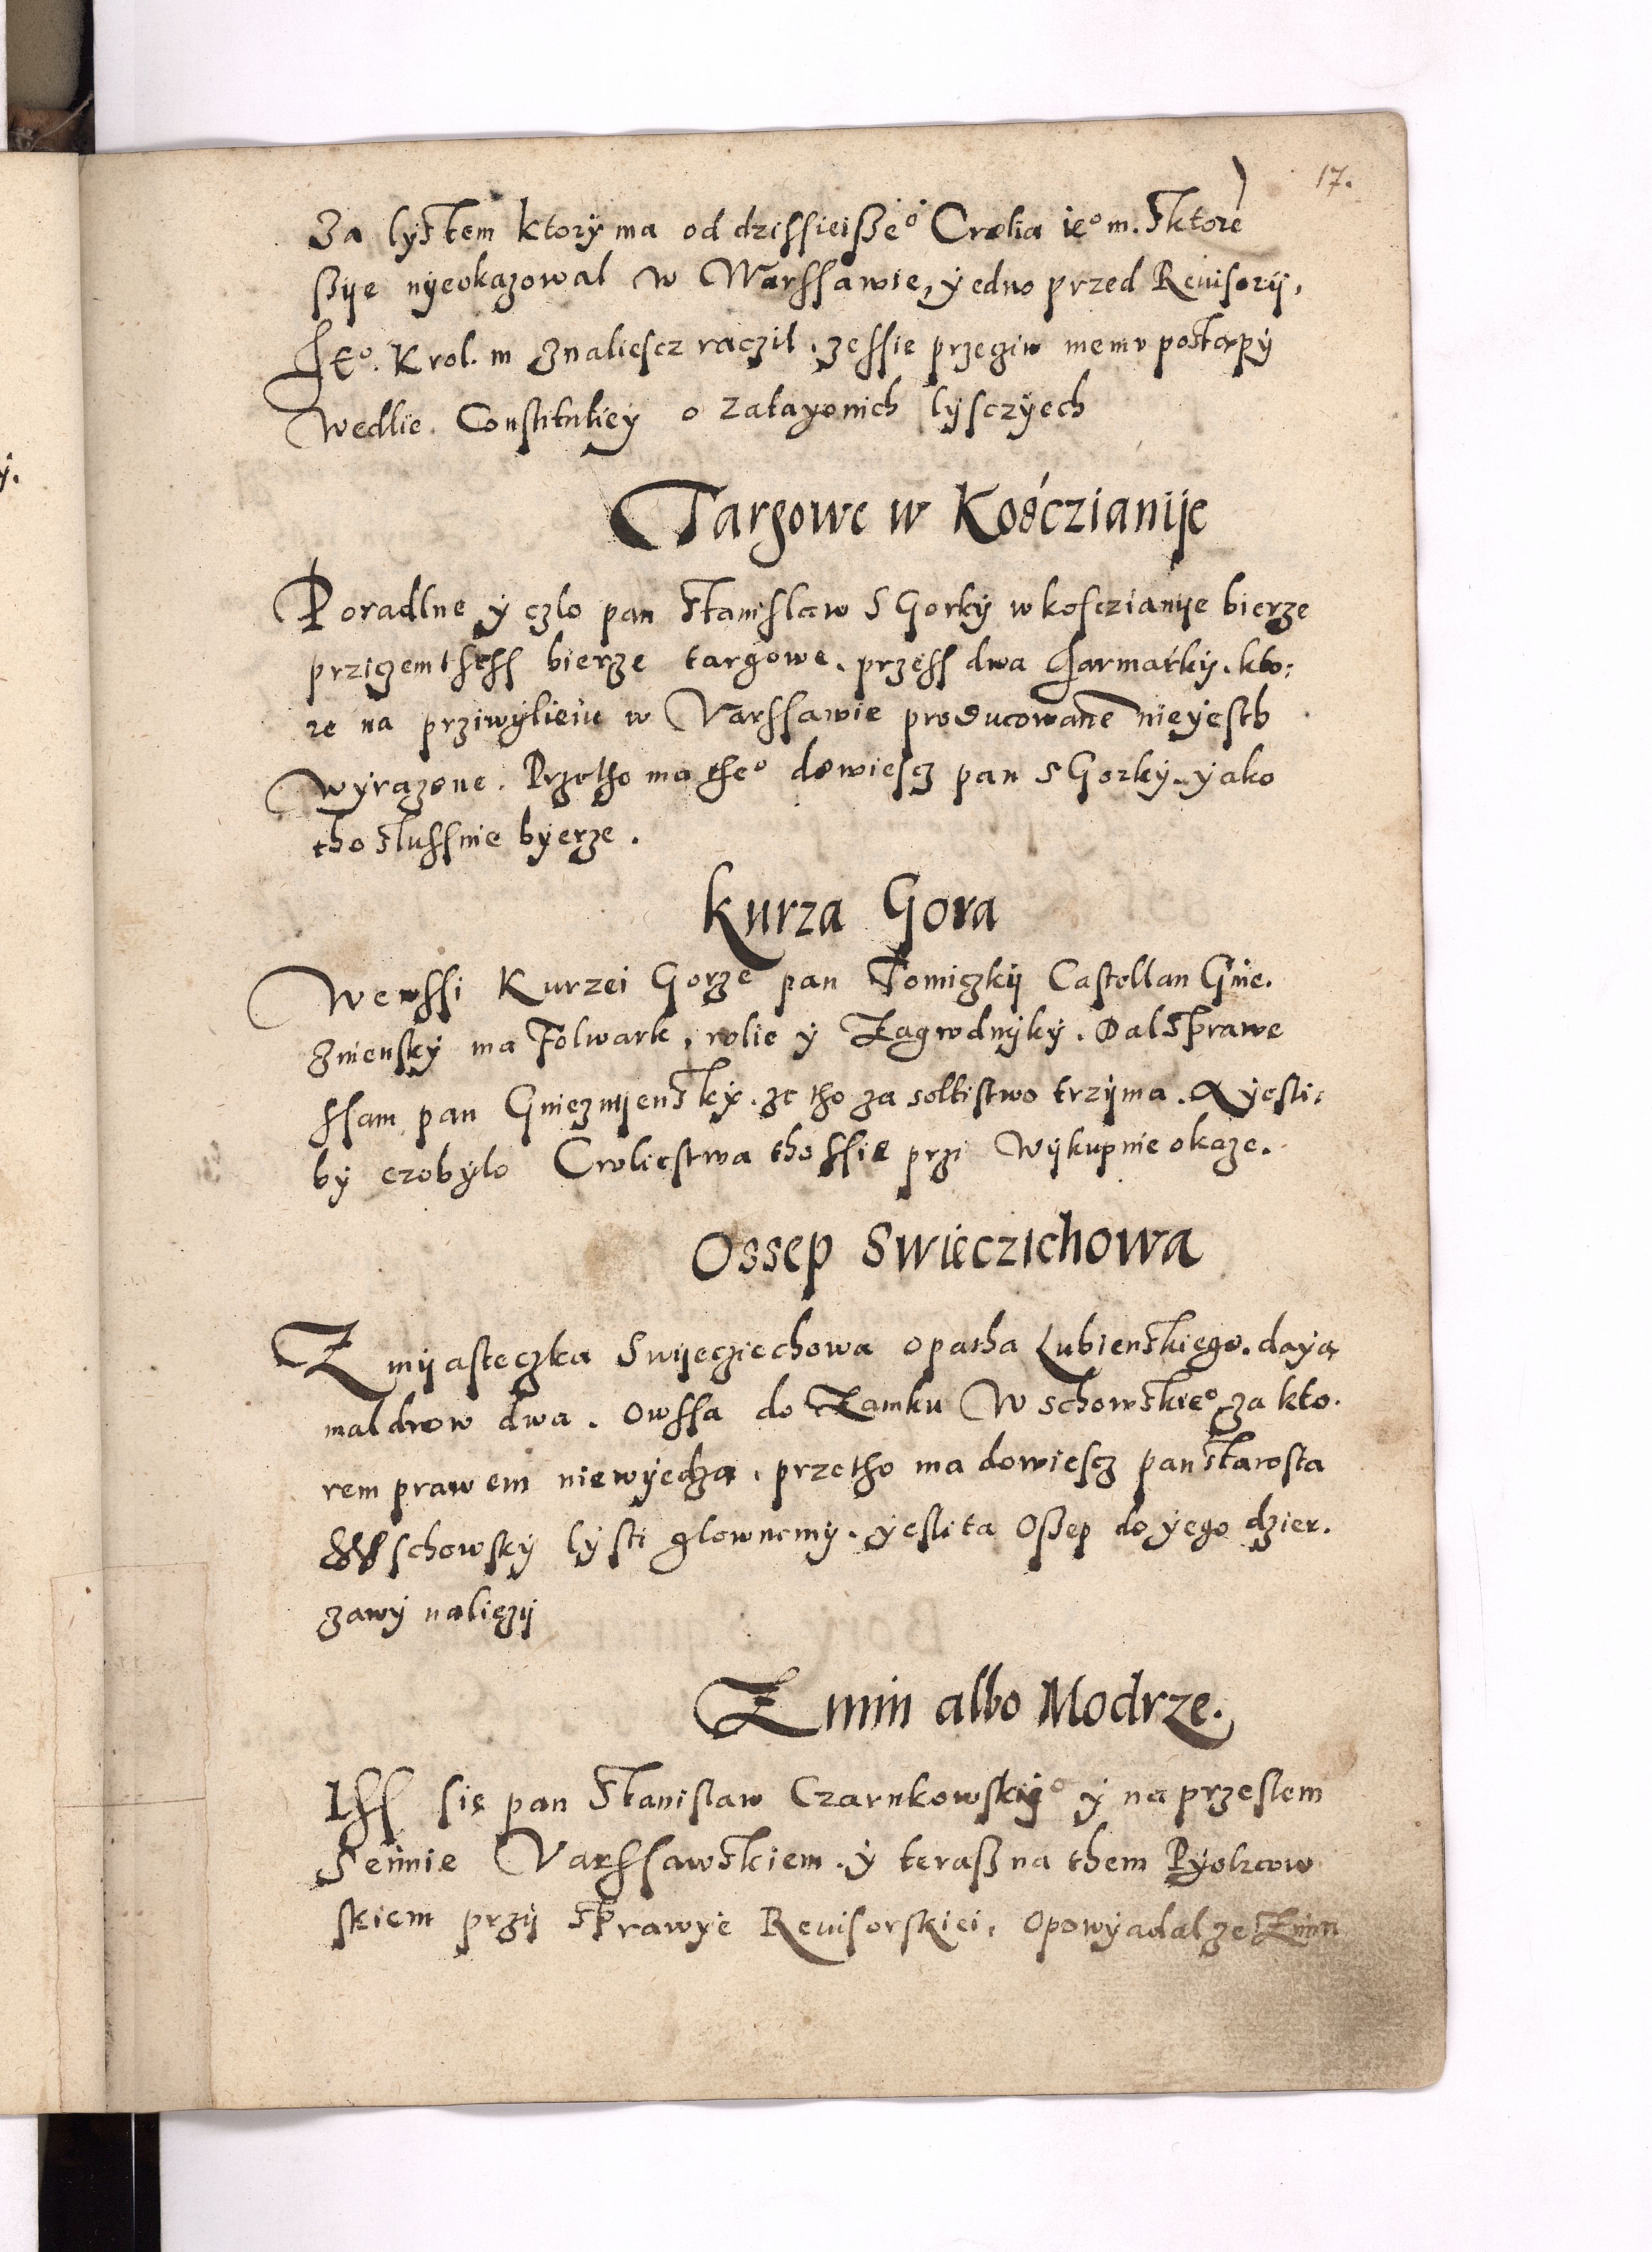 17.
Za lystem ktory ma od dzissieißeº Crolia ieº m. Sktore
ßije nyeokazowal w Warssawie, yedno przed Reuisorij,
Jeº. Krol. m Znaliescz raczil. zessie przeciw memv postąpÿ
Wedlie. Constitutiey o Zatayonich lysczyech
Targowe w Kosczianije
Poradlne y czlo pan Stanislaw S Gorky w kosczianije bierze
przitzem thess bierze targowe. przess dwa Jarmarky. kto:
re na prziwylieiu w Varssawie producowane nieyesth
wyrazone. Przetho ma theº dowiescz pan S Gorky. yako
tho slussnie byerze.
Kurza Gora
We wssi Kurzei Gorze pan Tomiczkij Castellan Gnie.
zniensky ma Folwark, rolie y Zagrodnyky. Dal Sprawe
ssam pan Gnieznijensky. ze tho za soltistwo trzyma. A yesli:
by czobylo Croliestwa tho ssie przi Wykupnie okaze.
Ossep Swieczichowa
Z mijasteczka Swijecziechowa opatha Lubienskiego. dayą
maldrow dwa. owssa do Zamku Wschowskieº za kto.
rem prawem niewyedzą, przetho ma dowiescz pan Starosta
Wschowsky lysti glownemy. yesli ta Oßep do yego dzier.
zawy nalieży
Zmin albo Modrze.
Iss sie pan Stanislaw Czarnkowskijº y na przeslem
Seimie Varssawskiem. y teraß na them Pyotrcow
skiem przij Sprawye Reuisorskiei, opowyadal ze Zmin